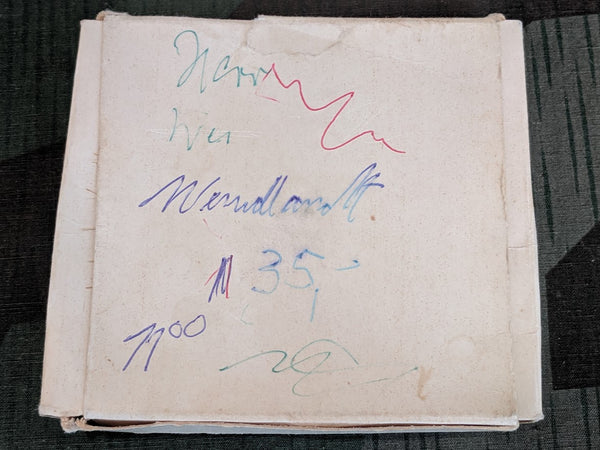 Herr
Wen
Wendlandt
35,-
11⁰⁰